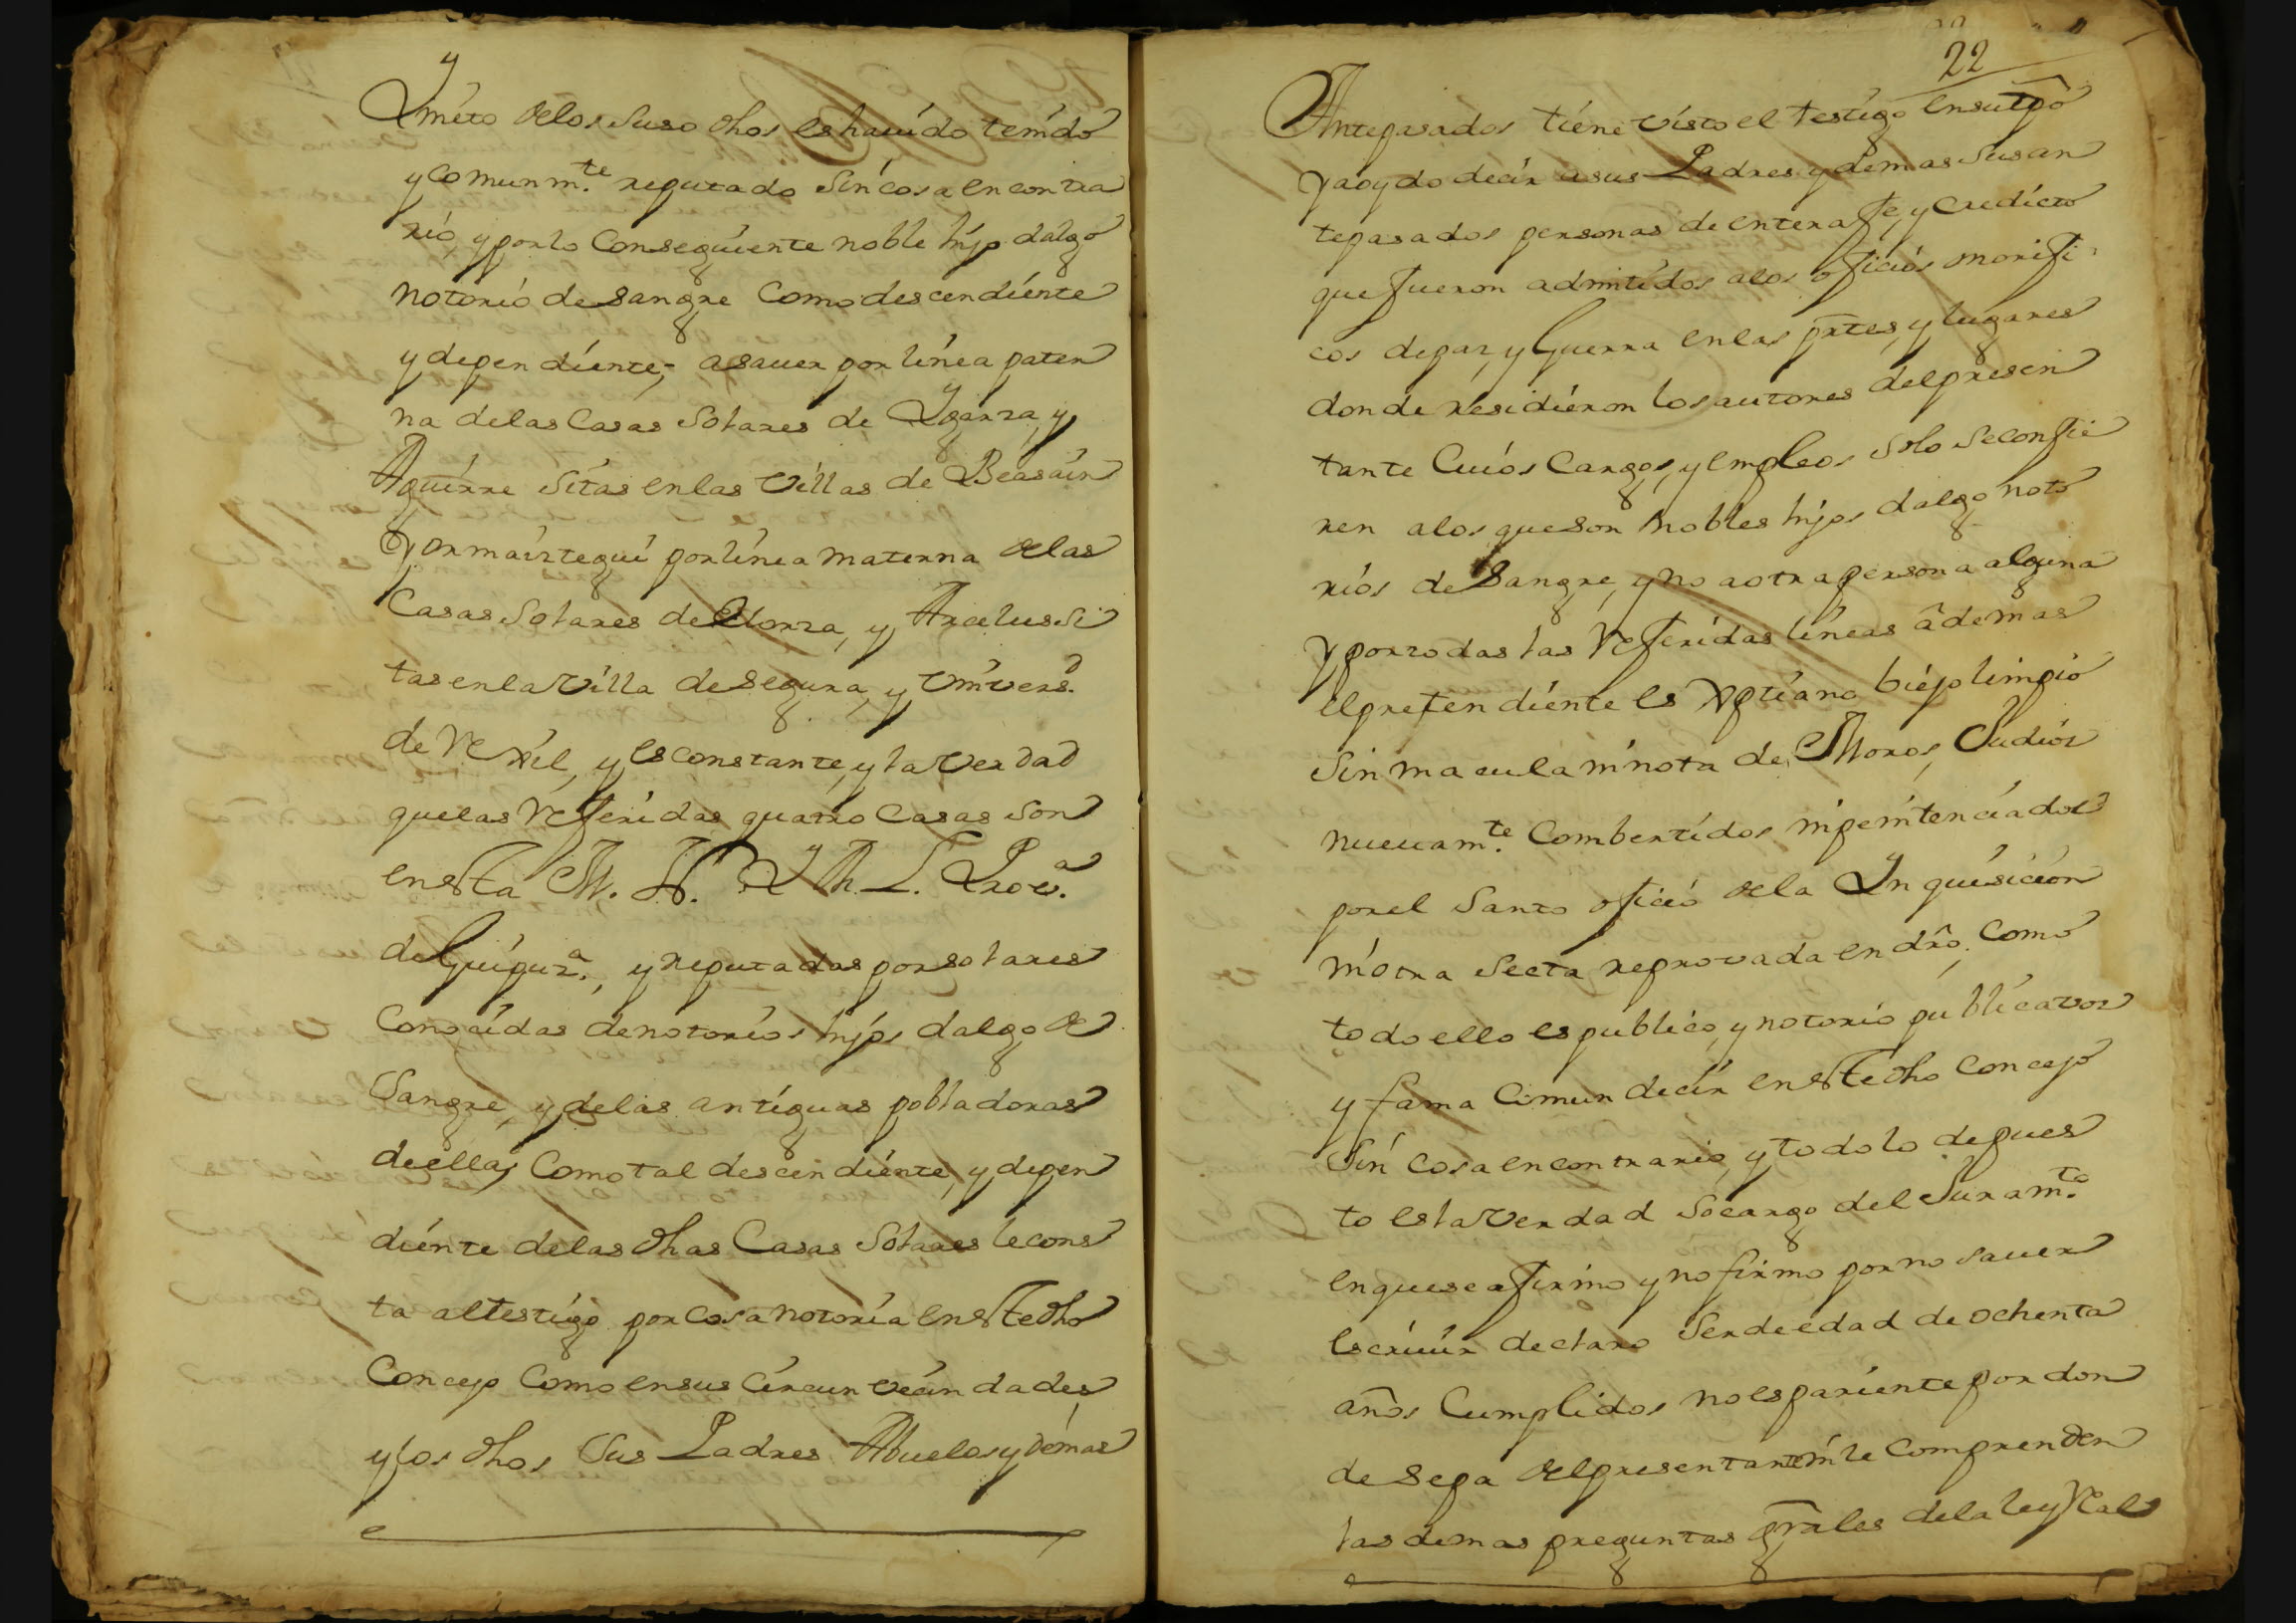 Y nieto delos Suso dhos es hauido tenido
y comunm.te reputado Sin cosa en contra
rio, y por lo Conseguiente noble hijo dalgo
notorio de Sangre Como descendiente
y dependiente, asauer por linea pater
na delas Casas Solares de Ygarza, y
Aguirre Sitas en las Villas de Beasain
y ormaiztegui por linea materna delas
Casas Solares de Elorza, y Arcelus Si
tas en la Villa de Segura, y Vnivers.d
de Rexil, y es constante, y la Verdad
que las Referidas quatro Casas Son
en esta M. N. Y M. L. Prov.a
de Guipuz.a, y reputadas por solares
Conocidas de notorios hijos dalgo de
Sangre, y delas antiguas pobladoras
de ella, y Como tal descendiente, y depen
diente delas dhas Casas Solares le cons
ta al testigo por Cosa notoria en este dho
Concejo Como en sus Circun vecindades
y los dhos Sus Padres Abuelos y demas
22
Antepasados tiene visto el testigo en su tpo
y a oydo decir a sus Padres y demas Sus an
tepasados personas de entera fe, y credicto
que fueron admitidos alos oficios onorifi
cos de paz, y Guerra en las prtes, y lugares
donde residieron los autores del presen
tante Cuios Cargos, y empleos Solo Se confie
ren alos que son nobles hijos dalgo noto
rios de Sangre, y no a otra persona alguna
y por todas las Referidas lineas âdemas
el pretendiente es Xptiano biejo limpio
Sin macula ni nota de Moros, Judios
nueuam.te Combertidos ni penitenciados
por el Santo oficio dela Ynquisicion
ni otra Secta reprovada en dro, Como
todo ello es publico, y notorio publica voz
y fama Comun decir en este dho Concejo
Sin cosa en contrario, y todo lo depues
to es la Verdad So cargo del Juram.to
en que se afirmo y no firmo por no Sauer
escriuir declaro Ser de edad de ochenta
años Cumplidos no es pariente por don
de Sepa del presentante ni le Comprenden
las demas preguntas grales dela ley Real